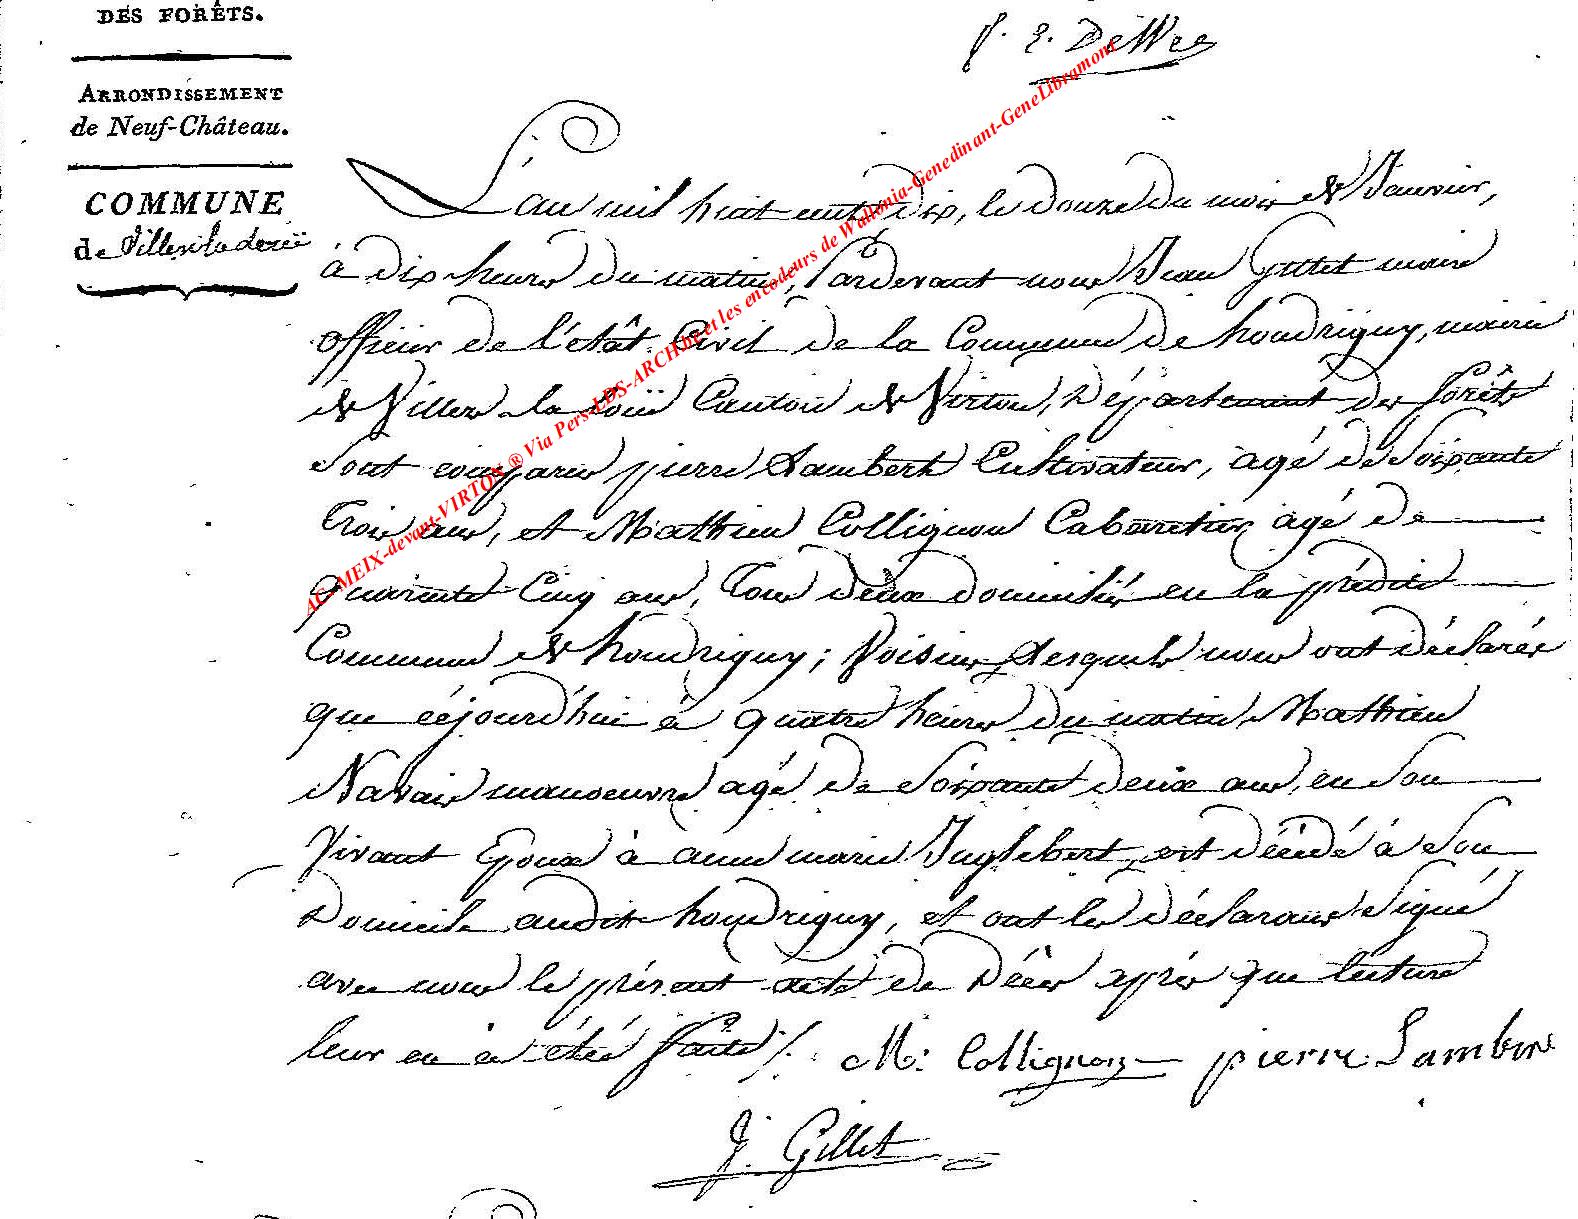 DES FORÊTS.
ARRONDISSEMENT
de Neuf-Château.
COMMUNE
de Villers la
L'an mil huit cent dix, le douze du mois de Janvier,
à dix heures du matin, Pardevant nous Jean Gillet maire
officier de l'etât Civil de la Commune de houdrigny, mairie
de Villers la loüe Canton de Virton, Département des forêts
sont comparus pierre Lambert Cultivateur, agé de soixante
trois ans, et Mathieu Collignon Cabaretier agé de
quarante Cinq ans, tous deux domiciliés en la prédite
Commune de houdrigny ; Voisins, Lesquels nous ont déclarés
que céjourd'hui à quatre heures du matin, Mathieu
Navaix manoeuvre agé de soixante deux ans, en son
Vivant Epoux à anne marie Inglebert, est décédé à son
Domicile audit houdrigny, et ont les déclarans signé
avec nous le présent acte de Décès après que lecture
leur en a été faite /. M: Collignon pierre Lambert
J. Gillet
AC-MEIX-devant-VIRTON ® Via Pers-LDS-ARCH.be et les encodeurs de Wallonia-Genedinant-GeneLibramont